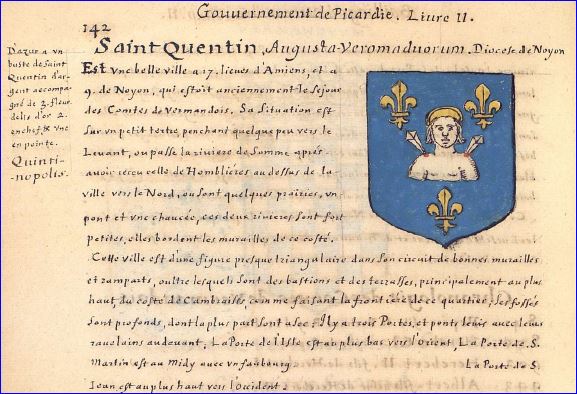 Gouuernement de Picardie. Liure II.
142
Saint Quentin, Augusta-Veromaduorum. Diocese de Noyon
D'azur a vn
buste de Saint
Quentin d'ar-
gent accompa-
gné de 3. fleur
delis d'or 2.
en chef, & vne
en pointe.
Quinti-
nopolis.
Est vne belle ville a 17. lieues d'Amiens, et a
9. de Noyon, qui estoit anciennement le sejour
des Comtes de Vermandois. Sa Situation est
sur vn petit tertre, penchant quelque peu vers le
Leuant, ou passe la riuiere de Somme aprés
auoir receu celle de Homblières au dessus de la
ville vers le Nord, ou sont quelques prairies, vn
pont et vne chaucée, ces deux riuieres sont fort
petites, elles bordent les murailles de ce costé.
Cette ville est d'une figure presque triangulaire dans son circuit de bonnes murailles
et ramparts, oultre lesquels sont des bastions et des terrasses, principalement au plus
haut, du costé de Cambraisis, comme faisant la frontiere de ce quartier, ses fossés
sont profonds, dont la plus part sont a sec. Il y a trois Portes, et ponts leuis auec leurs
rauelains audeuant, La Porte de l'Isle est au plus bas vers l'Orient, La Porte de S.
Martin est au Midy auec vn fauburg La Porte de S.
Jean est au plus haut vers l'Occident.